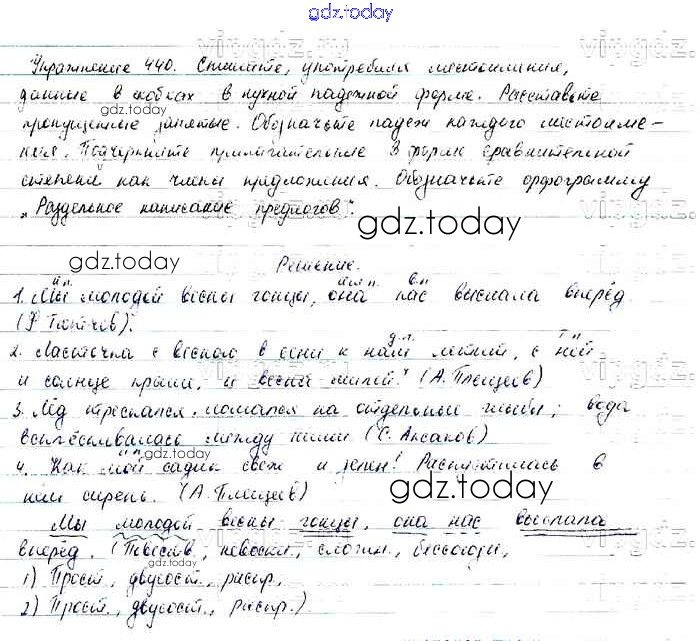 gdz.today
Упражнение 440. Спишите, употребляя местоимения,
данные в скобках в нужной падежной форме. Расставьте
gdz.today
пропущенные запятые. Обозначьте падеж каждого местоиме-
ния. Подчеркните прилагательные в форме сравнительной
степени как члены предложения. Обозначьте орфограмму
"Раздельное написание предлогов".
gdz.today
gdz.today
Решение.
И.п. И.п. В.п
1. Мы молодой весны гонцы, она нас выслала вперёд
(Ф Тютчев).
Д.п. Т.п
2. Ласточка с весною в сени к нам летит, с ней
и солнце краше, и весна милей. (А. Плещеев)
3. Лёд трескался, ломался на отдельные глыбы; вода
всплёскивалась между ними (С. Аксаков)
gdz.today
4. Как мой садик свеж и зелен! Распустилась в
нём сирень. (А. Плещеев)
gdz.today
Мы молодой весны гонцы, она нас выслала
вперёд. (Повеств., невоскл., сложн., бессоюзн,
1) Прост, двусост, распр,
2) Прост., двусост, распр.)
gdz.today